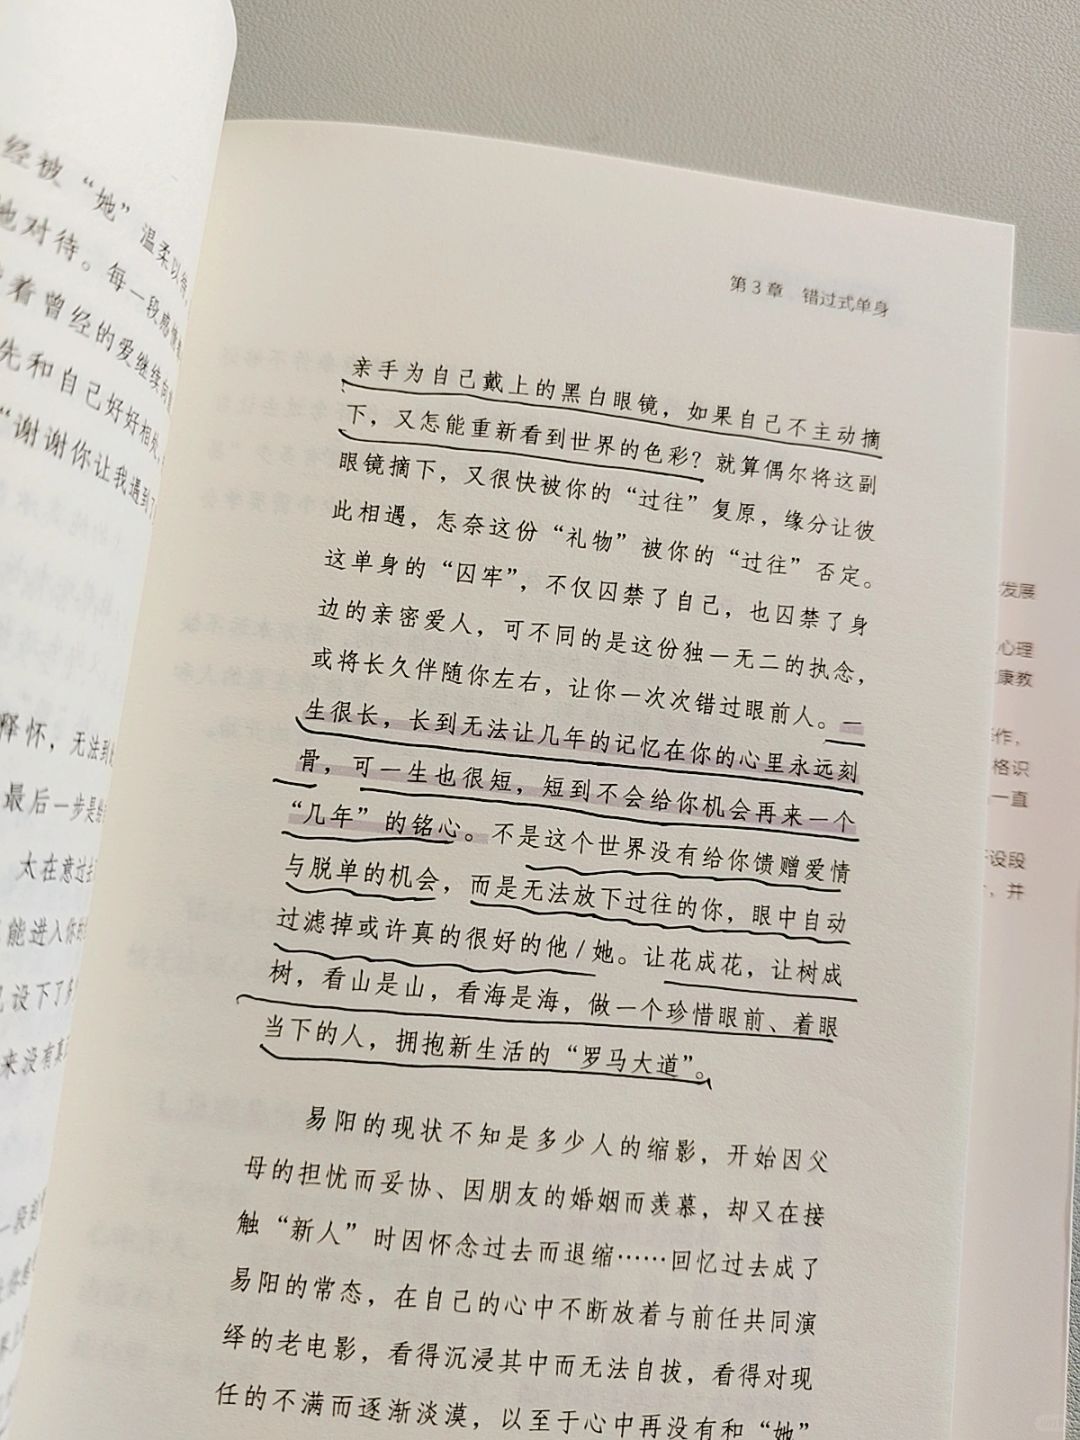 经被“她”温柔以待，
地对待。每一段感情
着曾经的爱继续向
先和自己好好相处，
“谢谢你让我遇到了
释怀，无法到
最后一步是给
太在意过去
能进入你的
设下了
来没有真
一段
第3章 错过式单身
亲手为自己戴上的黑白眼镜，如果自己不主动摘
下，又怎能重新看到世界的色彩？就算偶尔将这副
眼镜摘下，又很快被你的“过往”复原，缘分让彼
此相遇，怎奈这份“礼物”被你的“过往”否定。
这单身的“囚牢”，不仅囚禁了自己，也囚禁了身
边的亲密爱人，可不同的是这份独一无二的执念，
或将长久伴随你左右，让你一次次错过眼前人。一
生很长，长到无法让几年的记忆在你的心里永远刻
骨，可一生也很短，短到不会给你机会再来一个
“几年”的铭心。不是这个世界没有给你馈赠爱情
与脱单的机会，而是无法放下过往的你，眼中自动
过滤掉或许真的很好的他/她。让花成花，让树成
树，看山是山，看海是海，做一个珍惜眼前、着眼
当下的人，拥抱新生活的“罗马大道”。
易阳的现状不知是多少人的缩影，开始因父
母的担忧而妥协、因朋友的婚姻而羡慕，却又在接
触“新人”时因怀念过去而退缩……回忆过去成了
易阳的常态，在自己的心中不断放着与前任共同演
绎的老电影，看得沉浸其中而无法自拔，看得对现
任的不满而逐渐淡漠，以至于心中再没有和“她”
发展
心理
康教
作，
格识
一直
设段
，并